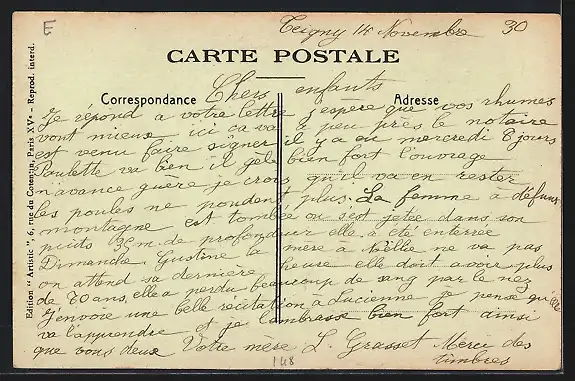 Teigny 14 Novembre 30
CARTE POSTALE
Correspondance
Adresse
Chers enfants
Je répond a votre lettre j'espère que vos rhumes
vont mieux ici ca va a peu près le notaire
est venu faire signer il y a eu mercredi 8 jours
Paulette va bien il gele bien fort l'ouvrage
n'avance guère je crois qu'il va en rester
les poules ne pondent plus. La femme a défunt
montagne est tombée ou s'est jetée dans son
puits 35 m. de profondeur elle a été enterrée
Dimanche Justine la mère à Néllie ne va pas
on attend sa dernière heure elle doit avoir plus
de 80 ans, elle a perdu beaucoup de sang par le nez
J'envoie une belle récitation a Lucienne je pense qu'elle
va l'apprendre et je l'embrasse bien fort ainsi
que vous deux Votre mère L. Grasset Merci des
timbres
148
Edition " Artistic ", 6, rue du Cotentin, Paris XVe - Reprod. interd.